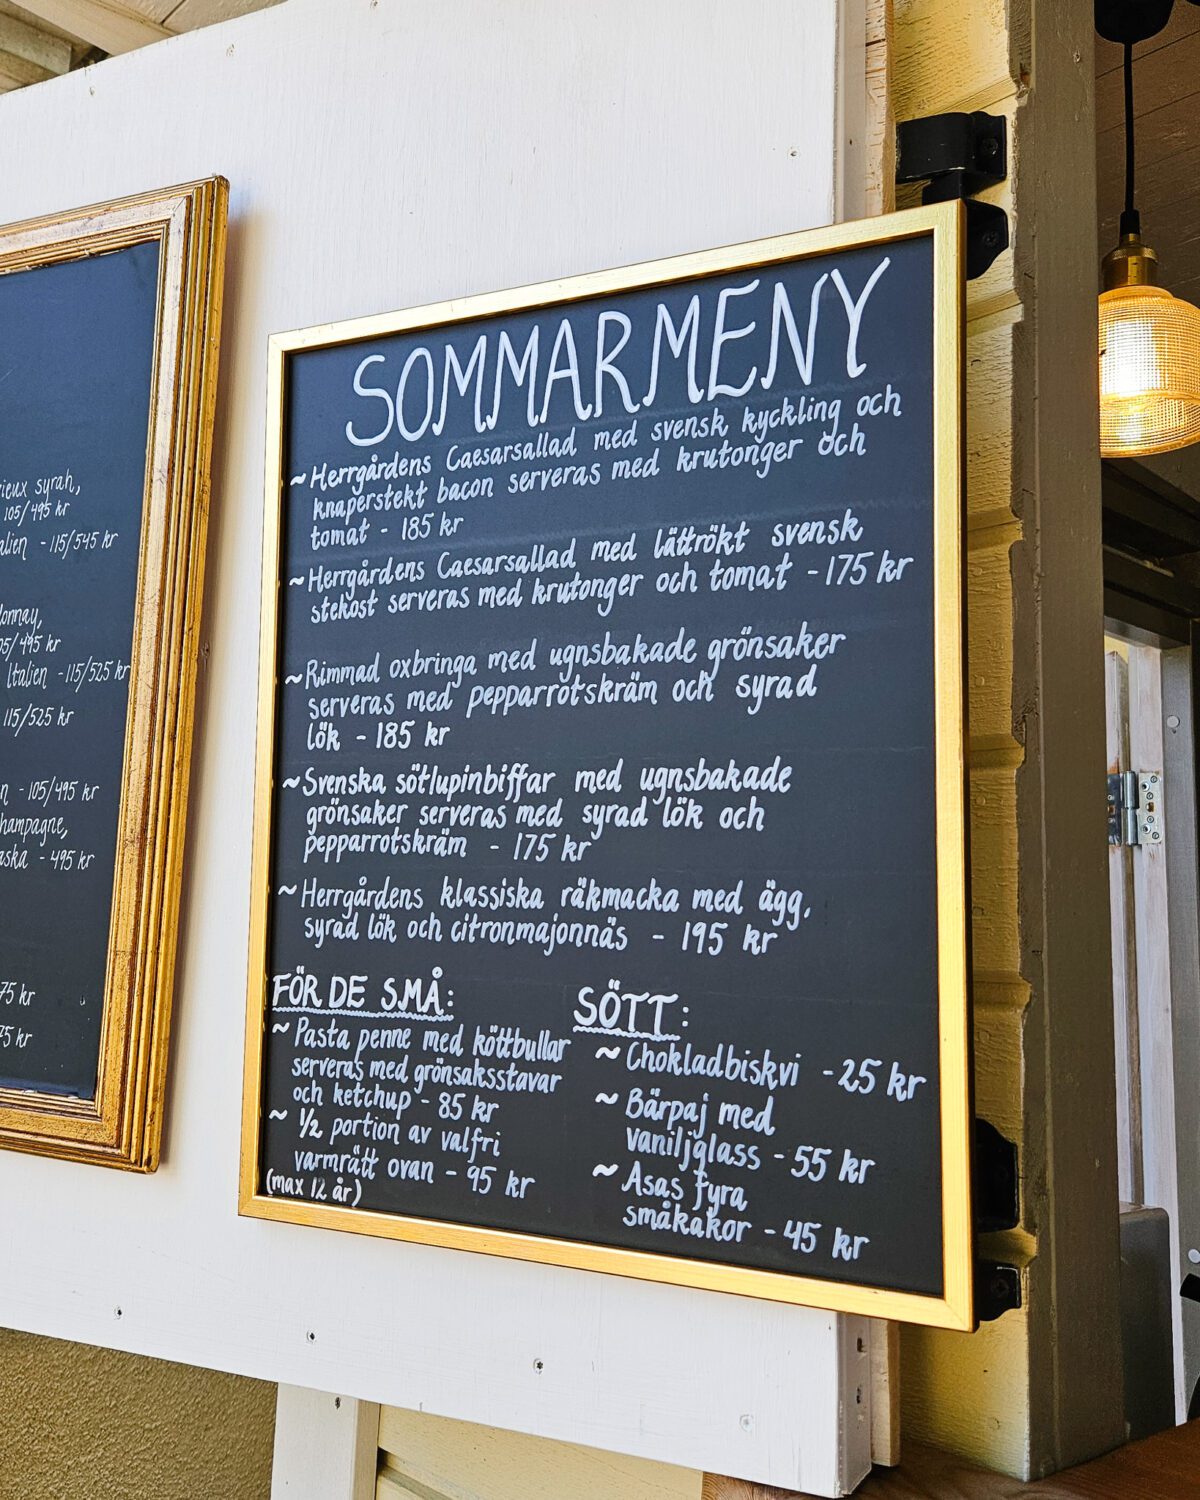 syrah,
105/495 kr
- 115/545 kr
495 kr
Italien - 115/525 kr
115/525 kr
- 105/495 kr
- 495 kr
SOMMARMENY
~ Herrgårdens Caesarsallad med svensk kyckling och
knaperstekt bacon serveras med krutonger och
tomat - 185 kr
~ Herrgårdens Caesarsallad med lättrökt svensk
stekost serveras med krutonger och tomat - 175 kr
~ Rimmad oxbringa med ugnsbakade grönsaker
serveras med pepparrotskräm och syrad
lök - 185 kr
~ Svenska sötlupinbiffar med ugnsbakade
grönsaker serveras med syrad lök och
pepparrotskräm - 175 kr
~ Herrgårdens klassiska räkmacka med ägg,
syrad lök och citronmajonnäs - 195 kr
FÖR DE SMÅ:
~ Pasta penne med köttbullar
serveras med grönsaksstavar
och ketchup - 85 kr
~ 1/2 portion av valfri
varmrätt ovan - 95 kr
(max 12 år)
SÖTT:
~ Chokladbiskvi - 25 kr
~ Bärpaj med
vaniljglass - 55 kr
~ Åsas fyra
småkakor - 45 kr